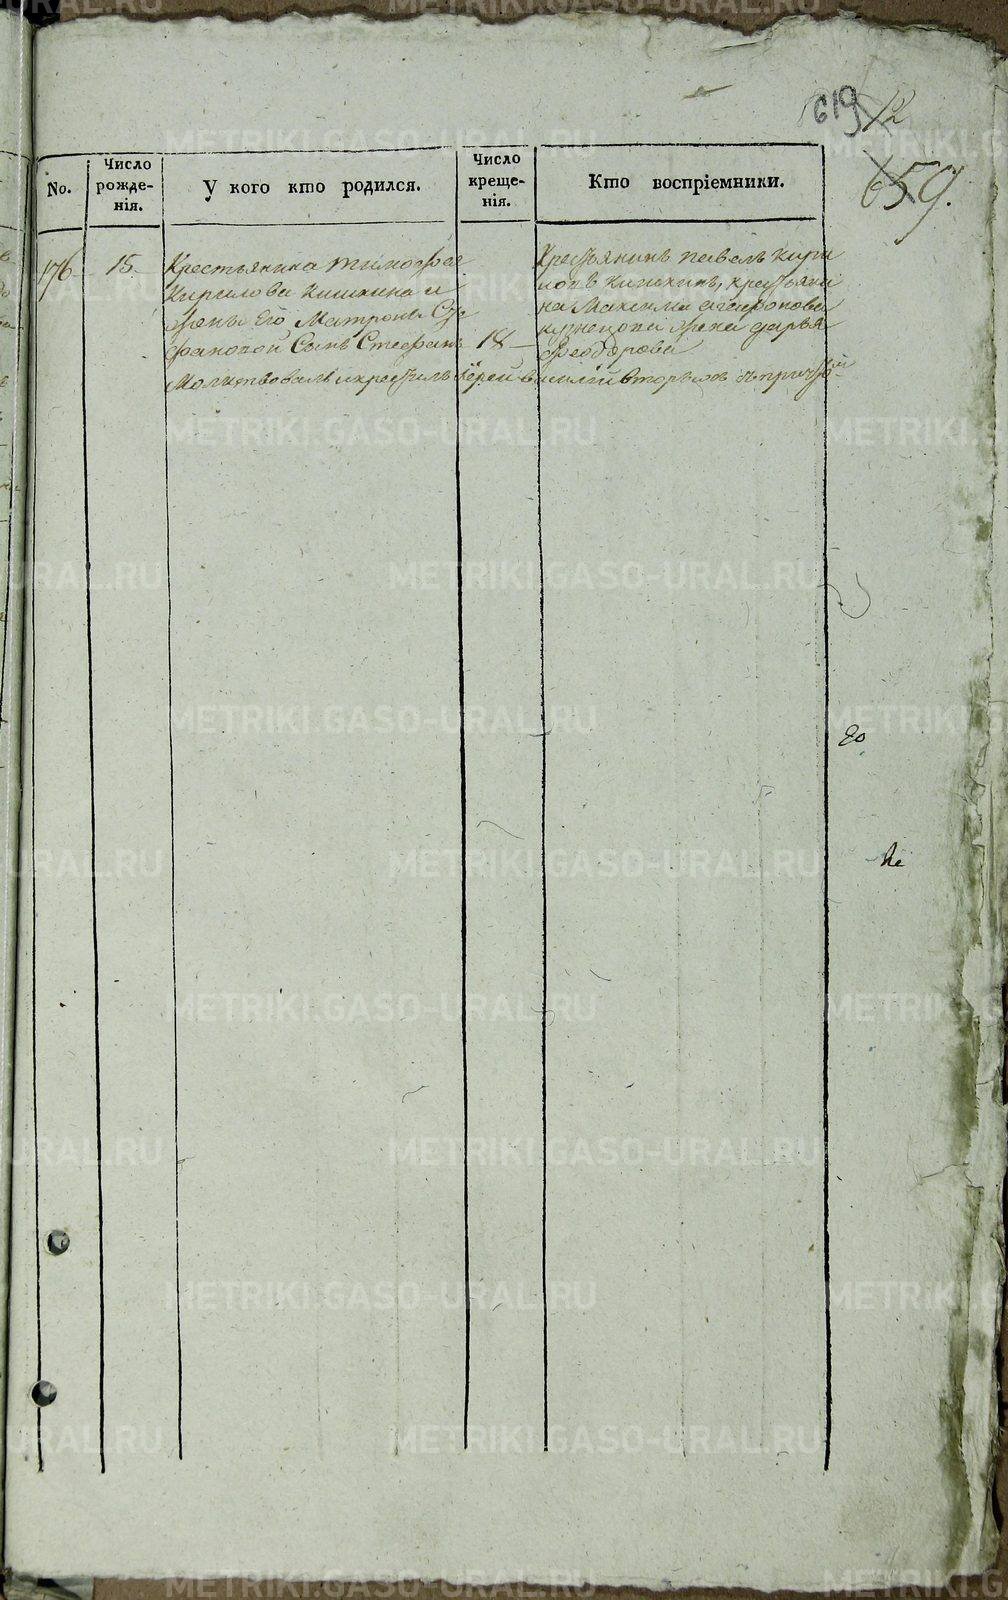 619 12
659.
No.
Число рожде-нія.
У кого кто родился.
Число креще-нія.
Кто воспріемники.
176
15
Крестьянина Тимофея
Кирилова Кишкина и
жены Его Матроны Сте
фановой Сынъ Стефанъ
18
Крестьянинъ Павелъ Кири
ловъ Кишкинъ, крестьяни
на Максима Агафонова
Кузнецова жена Дарья
Феодорова
Молитвовалъ и крестилъ Іерей Василій Вторыхъ съ причтомъ
METRIKI.GASO-URAL.RU